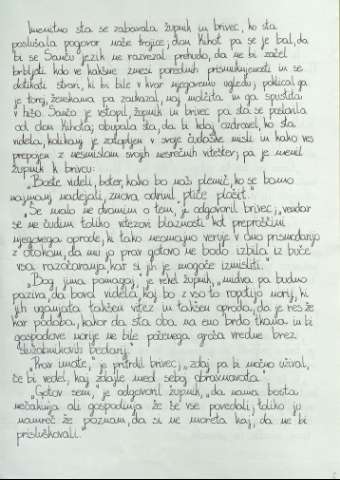 Imenitno sta se zabavala župnik in brivec, ko sta
poslušala pogovor naše trojice; don Kihot pa se je bal, da
bi se Sanču jezik ne razvezal prehudo, da ne bi začel
brbljati kdo ve kakšne zmesi porednih prismuknjenosti in se
dotikati stvari, ki bi bile v kvar njegovemu ugledu; poklical ga
je torej, ženskama pa zaukazal, naj molčita in ga spustita
v hišo. Sančo je vstopil, župnik in brivec pa sta se poslovila
od don Kihota; obupala sta, da bi kdaj ozdravel, ko sta
videla, kolikanj je zatopljen v svoje čudaške misli in kako ves
prepojen z nesmislom svojih nesrečnih viteštev; pa je menil
župnik k brivcu:
"Boste videli, boter, kako bo naš plemič, ko se bomo
najmanj nadejali, znova odrinil ptiče plašit."
"Še malo ne dvomim o tem," je odgovoril brivec, "vendar
se ne čudim toliko vitezovi blaznosti kot preproščini
njegovega oprode, ki tako neomajno veruje v ono prismodarijo
z otokom, da mu jo prav gotovo ne bodo izbila iz buče
vsa razočaranja, kar si jih je mogoče izmisliti."
"Bog jima pomagaj," je rekel župnik, "midva pa budno
paziva, da bova videla, kaj bo z vso to ropotijo norij, ki
jih uganjata takšen vitez in takšen oproda, da je res že
kar podoba, kakor da sta oba na eno brdo tkana in bi
gospodove norije ne bile počenega groša vredne brez
služabnikovih bedarij."
"Prav imate," je pritrdil brivec, "zdaj pa bi močno užival,
če bi vedel, kaj zdajle med seboj obravnavata."
"Gotov sem," je odgovoril župnik, "da nama bosta
nečakinja ali gospodinja že še vse povedali; toliko ju
namreč že poznam, da si ne moreta kaj, da ne bi
prisluškovali."